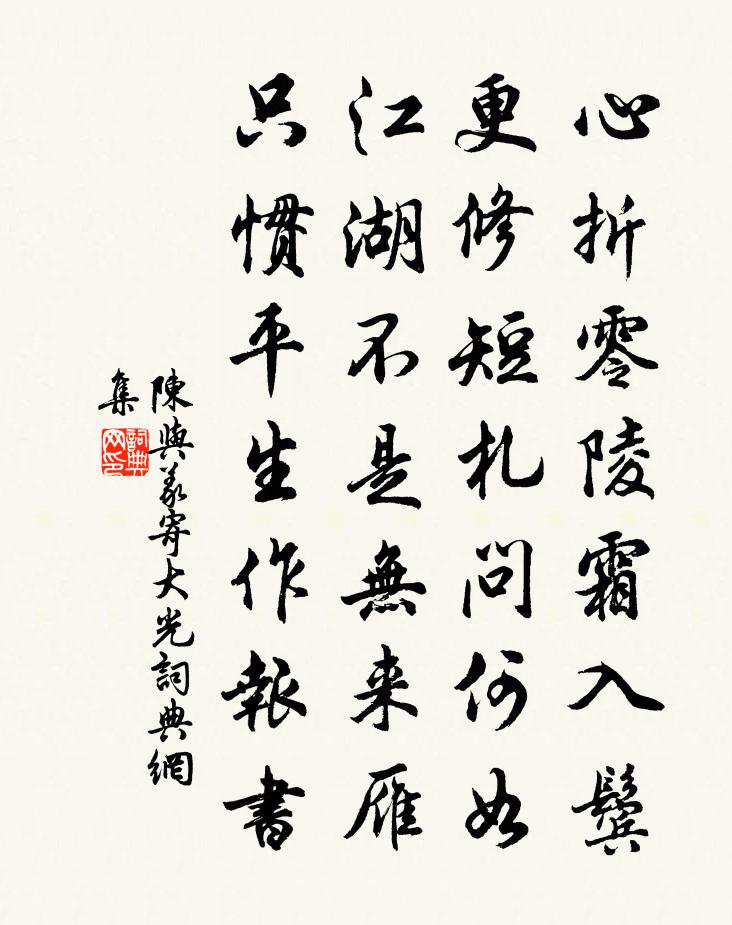 心折零陵霜入鬓
更修短札问何如
江湖不是無来雁
只惯平生作報書
陳與義寄大光詞典網
集
詞典
网印